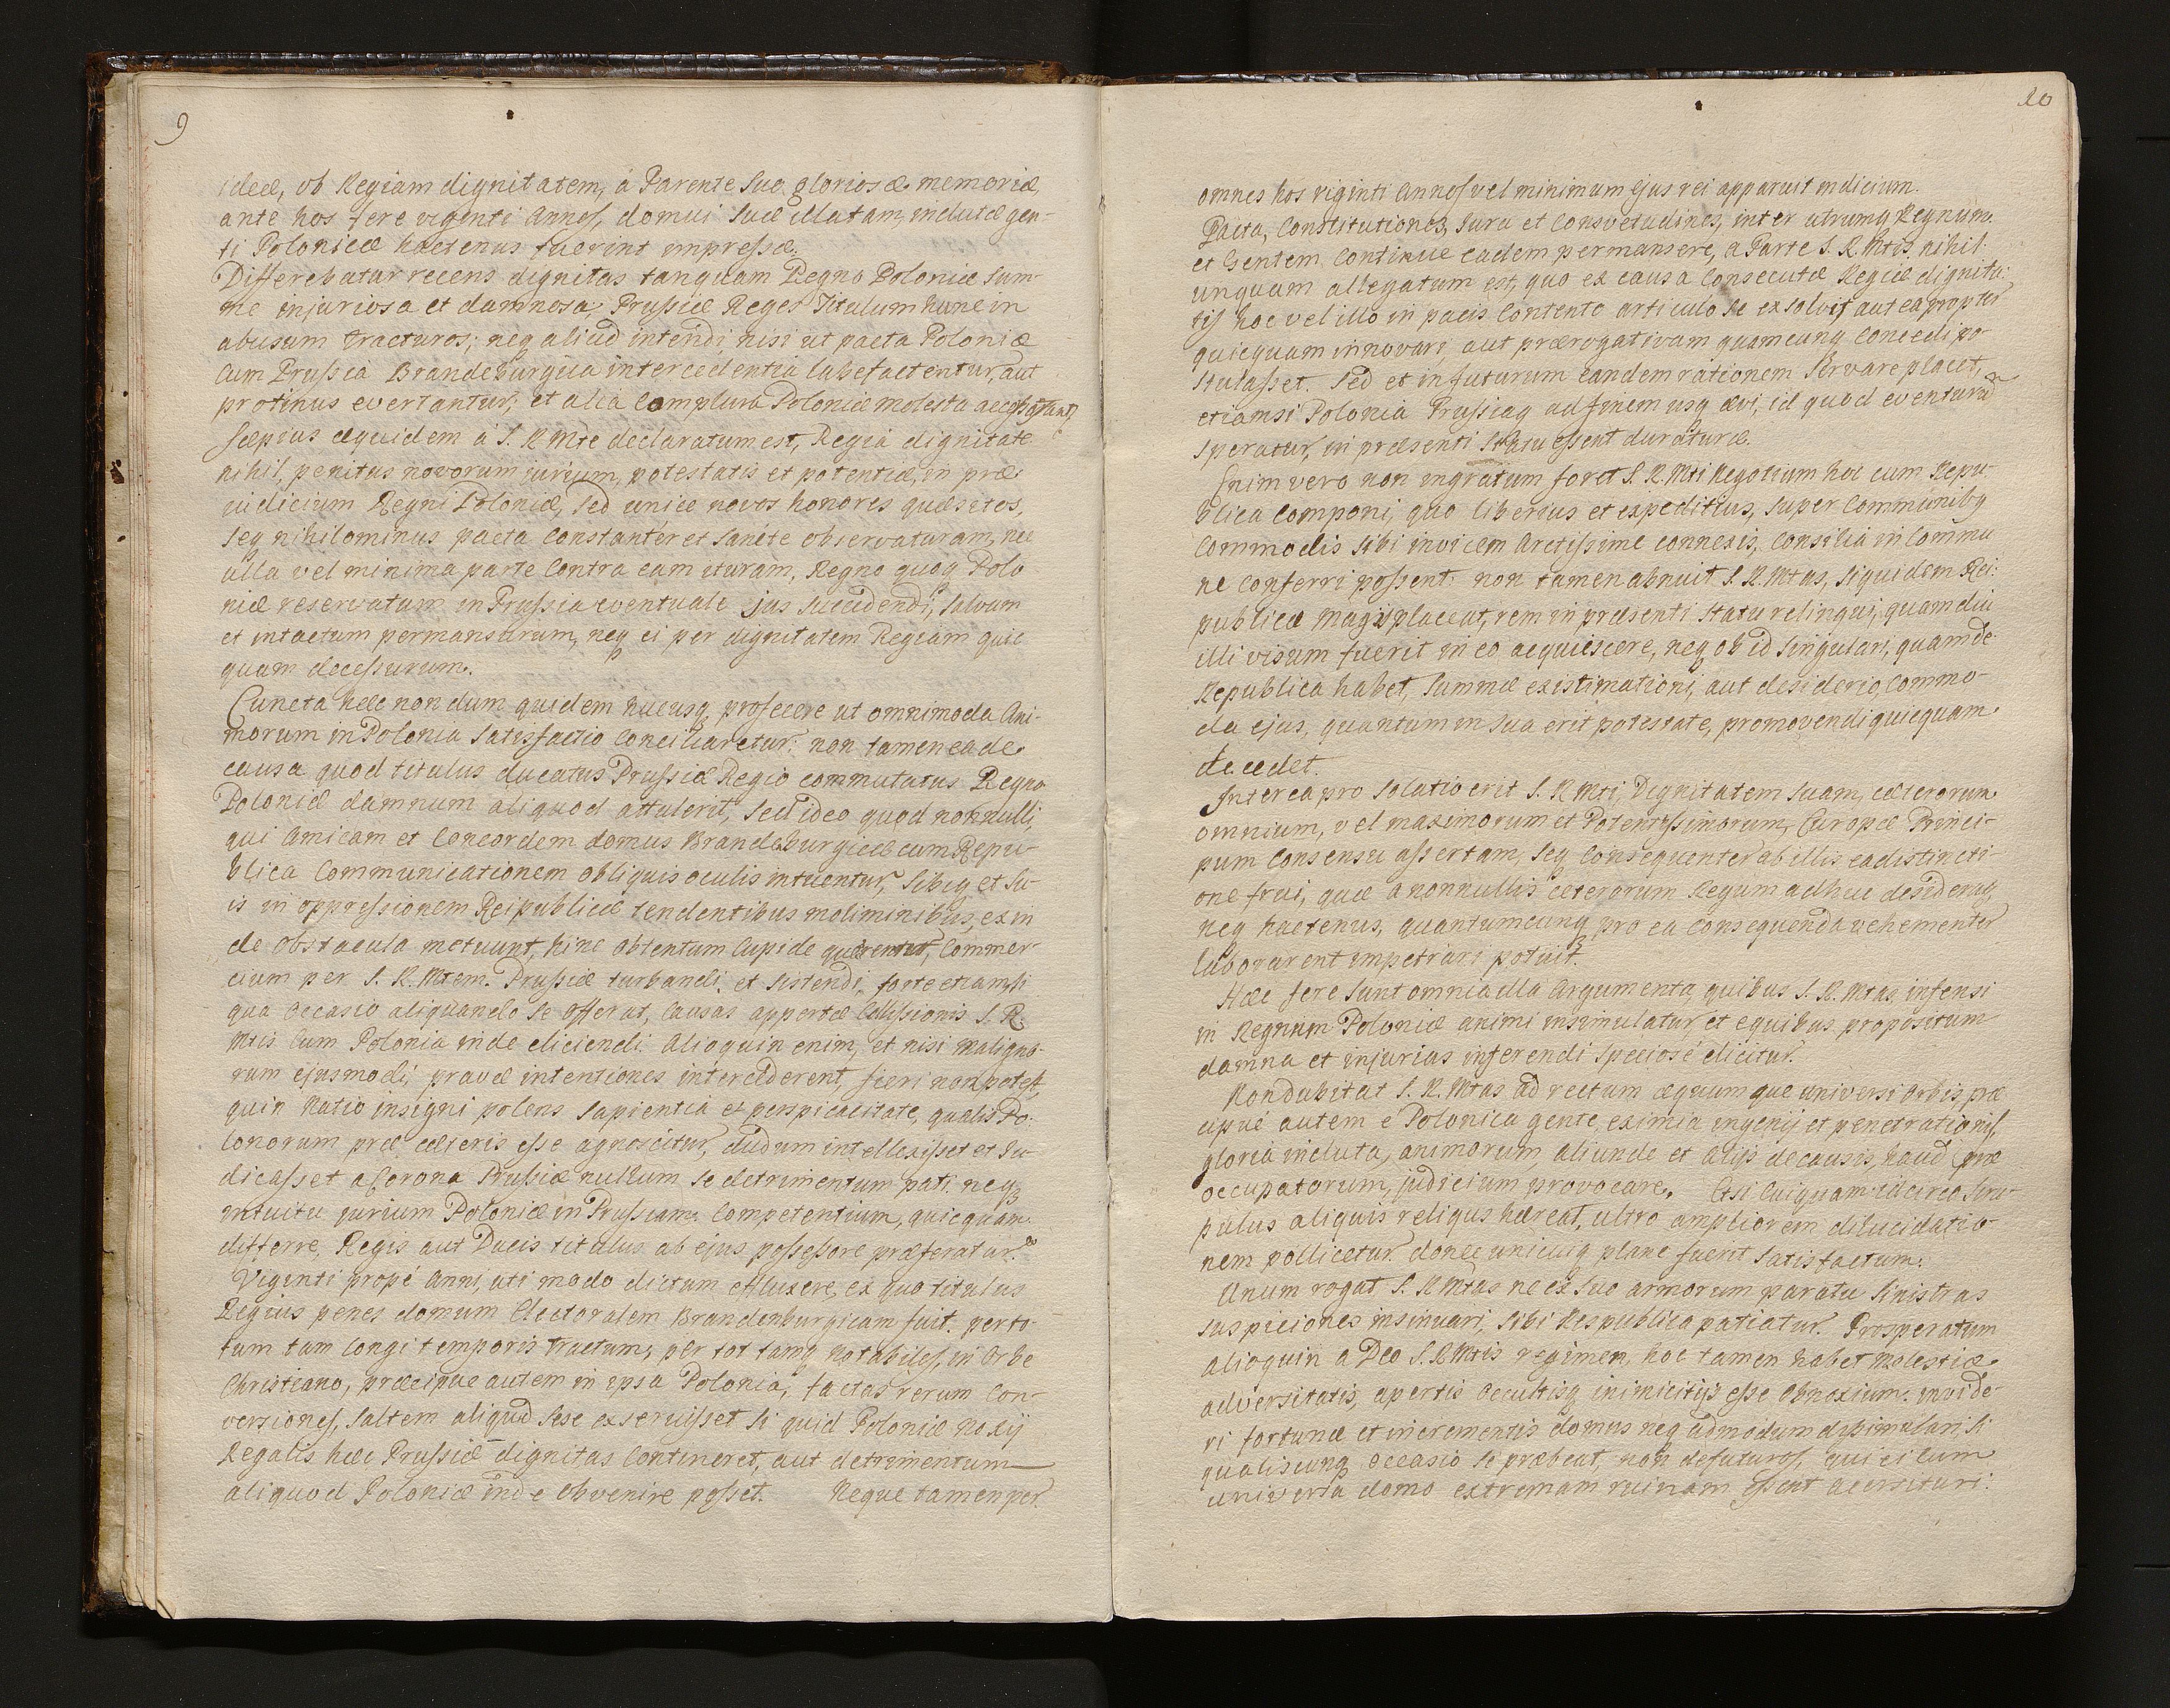 9
ideæ, ob Regiam dignitatem, à Parente Suo gloriosæ memoriæ,
ante hos fere viginti Annos, domui Suæ illatam, inclutæ gen-
ti Polonicæ hactenus fuerint impressæ.
Differebatur recens dignitas tanquam Regno Poloniæ Sum-
me injuriosa et damnosa; Prussiæ Reges Titulum hunc in
abusum tracturos; neq aliud intendi, nisi ut pacta Poloniæ
Cum Prussia Brandeburgica intercedentia labefactentur, aut
protinus evertantur, et alia Complura Poloniæ molesta
Sæpius æquidem à S. R Mte declaratum est, Regiâ dignitate
nihil, penitus novorum jurium, potestatis et potentiæ, in præ-
judicium Regni Poloniæ, Sed unice novos honores quæsitos,
Seq nihilominus pacta Constanter et Sancte observaturam, nec
ulla vel minima parte Contra eam ituram, Regno quoq Polo
niæ reservatum in Prussia eventuale jus Succedendi, Salvum
et intactum permansurum, neq ei per dignitatem Regiam quic
quam decessurum.
Cuncta hæc non dum quidem hucusq profecere ut omnimoda Ani-
morum in Polonia Satisfactio Conciliaretur: non tamen ea de
causa quod titulus ducatus Prussiæ Regio commutatus Regno
Poloniæ damnum aliquod attulerit, Sed ideo quod nonnulli,
qui Amicam et Concordem domus Brandeburgicæ cum Repu-
blica Communicationem obliquis oculis intuentur, Sibiq et Su-
is in oppressionem Reipublicæ tendentibus moliminibus, ex in
de Obstacula metuunt, hinc obtentum Cupide quærentes, Commer-
cium per S. R. Mtem. Prussiæ turbandi, et Sistendi, forte etiamsi
qua Occasio aliquando Se offerat, Causas appertæ Collisionis S. R.
Mtis Cum Polonia inde eliciendi. Alioquin enim, et nisi maligno-
rum ejusmodi, pravæ intentiones intercederent, fieri non potest,
quin Natio insigni polens Sapientia et perspicacitate, qualis Po-
lonorum præ cæteris esse agnoscitur, dudum intellexisset et Ju-
dicasset a Corona Prussiæ nullum Se detrimentum pati. neq
intuitu jurium Poloniæ in Prussiam Competentium, quicquam
differre, Regis aut Ducis titulus ab ejus possessore præferatur.
Viginti propé Anni, uti modo dictum effluxere, ex quo titulus
Regius penes domum Electoralem Brandenburgicam fuit. per to-
tum tam longi temporis tractum, per tot tamq notabiles, in Orbe
Christiano, præcipue autem in ipsa Polonia, factas rerum Con-
versiones, Saltem aliquid Sese exseruisset Si quid Poloniæ noxij
Regalis hæc Prussiæ dignitas Contineret, aut detrimentum
aliquod Poloniæ inde obvenire posset. Neque tamen per
20
omnes hos viginti Annos vel minimum ejus rei apparuit indicium.
Pacta, Constitutiones, Jura et Consvetudines, inter utrumq Regnum
et Gentem Continue eadem permansere, a Parte S. R. Mtis, nihil
unquam allegatum est, quo ex causa Consecutæ Regiæ dignita-
tis hoc vel illo in pacis Contento articulo Se exsolvit aut ea propter
quicquam innovari, aut prærogativam quamcunq Concedi po
stulasset. Sed et in futurum eandem rationem Servare placet,
etiamsi Polonia Prussiaq ad finem usq ævi, id quod eventurū
Speratur, in præsenti Statu essent duraturæ.
Enim vero non ingratum foret S. R. Mti Negotium hoc cum Repu-
blica Componi, quo liberius et expeditius, Super Communibq
Commodis Sibi invicem Arctissime connexis, Consilia in Commu
ne Conferri possent: non tamen abnuit S. R. Mtas, Siquidem Rei-
publicæ magis placeat, rem in præsenti Statu relinqui, quamdiu
illi visum fuerit in eo acquiescere, neq ob id Singulari, quam de
Republica habet, Summæ existimationi, aut desiderio, Commo-
da ejus, quantum in Sua erit potestate, promovendi quicquam
decedet.
Interea pro Solatio erit S. R Mti, Dignitatem Suam, cæterorum
omnium, vel maximorum et Potentissimorum, Europæ Princi-
pum Consensu assertam, Seq Consequenter ab illis ea distincti-
one frui, quæ a nonnullis ceterorum Regum adhuc desiderat,
neq hactenus, quantumcunq pro ea Consequenda vehementer
laborarent impetrari potuit.
Hæc fere Sunt omnia illa Argumenta, quibus S. R. Mtas infensi
in Regnum Poloniæ animi insimulatur, et equibus propositum
damna et injurias inferendi Speciosé elicitur.
Non dubitat S. R. Mtas ad rectum æquumque universi Orbis, præ
cipué autem e Polonica gente, eximia ingenij et penetrationis,
gloria incluta, animorum, aliunde et alijs de causis, haud præ
occupatorum, judicium provocare. Etsi Cuiquam idcirco Scru-
pulus aliquis reliqus hæreat, ultro ampliorem dilucidatio-
nem pollicetur. donec unicuiq plane fuerit Satisfactum.
Unum rogat S. R Mtas ne ex Suo armorum paratu Sinistras
suspiciones insinuari, Sibi Respublica patiatur. Prosperatum
alioquin a Deo S. R Mtis regimen, hoc tamen habet molestiæ
adversitatis, apertis Occultisq inimicitijs esse Obnoxium. invide-
ri fortunæ et incrementis domus neq admodum dissimulari, Si
qualiscunq Occasio Se præbeat, non defuturos, qui ei cum
universa domo extremam ruinam essent accersituri.